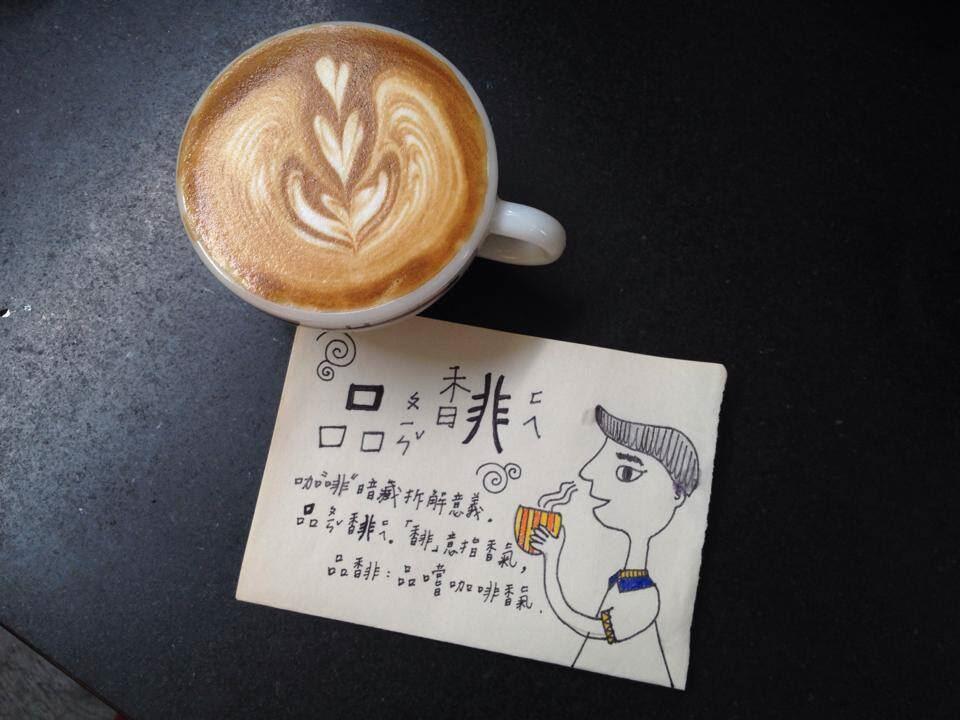 品ㄆㄧㄣˇ馡ㄈㄟ
咖"啡"暗藏拆解意義。
品ㄆㄧㄣˇ馡ㄈㄟ。「馡」意指香氣,
品馡:品嚐咖啡香氣.